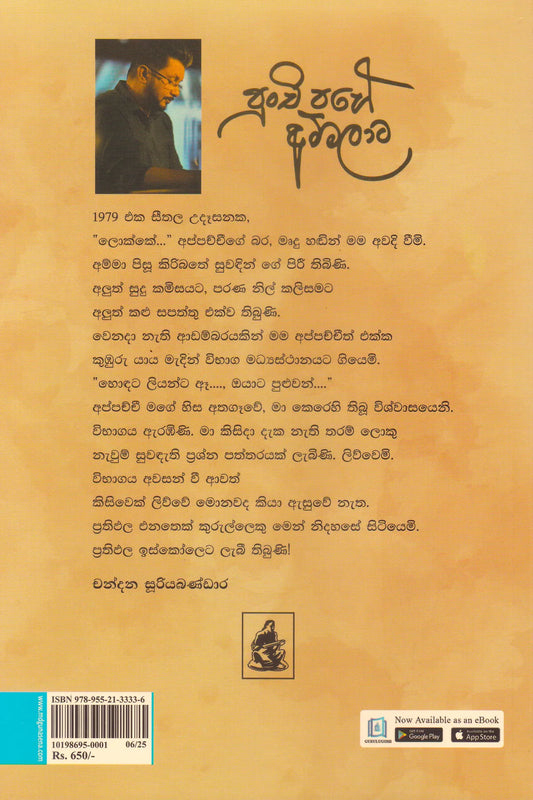 පුංචි පහේ
අම්මලාට
1979 එක සීතල උදෑසනක,
"ලොක්කේ..." අප්පච්චිගේ බර, මෘදු හඬින් මම අවදි වීමි.
අම්මා පිසූ කිරිබතේ සුවඳින් ගේ පිරී තිබිණි.
අලුත් සුදු කමිසයට, පරණ නිල් කලිසමට
අලුත් කළු සපත්තු එක්ව තිබුණි.
වෙනදා නැති ආඩම්බරයකින් මම අප්පච්චිත් එක්ක
කුඹුරු යාය මැදින් විභාග මධ්‍යස්ථානයට ගියෙමි.
"හොඳට ලියන්ට ඈ...., ඔයාට පුළුවන්...."
අප්පච්චි මගේ හිස අතගෑවේ, මා කෙරෙහි තිබූ විශ්වාසයෙනි.
විභාගය ඇරඹිණි. මා කිසිදා දැක නැති තරම් ලොකු
නැවුම් සුවඳැති ප්‍රශ්න පත්තරයක් ලැබිණි. ලිව්වෙමි.
විභාගය අවසන් වී ආවත්
කිසිවෙක් ලිව්වේ මොනවද කියා ඇසුවේ නැත.
ප්‍රතිඵල එනතෙක් කුරුල්ලෙකු මෙන් නිදහසේ සිටියෙමි.
ප්‍රතිඵල ඉස්කෝලෙට ලැබී තිබුණි!
චන්දන සූරියබණ්ඩාර
www.mdgunasena.com
ISBN 978-955-21-3333-6
10198695-0001 06/25
Rs. 650/-
GURULUGOMI
Now Available as an eBook
GET IT ON
Google Play
Available on the
App Store